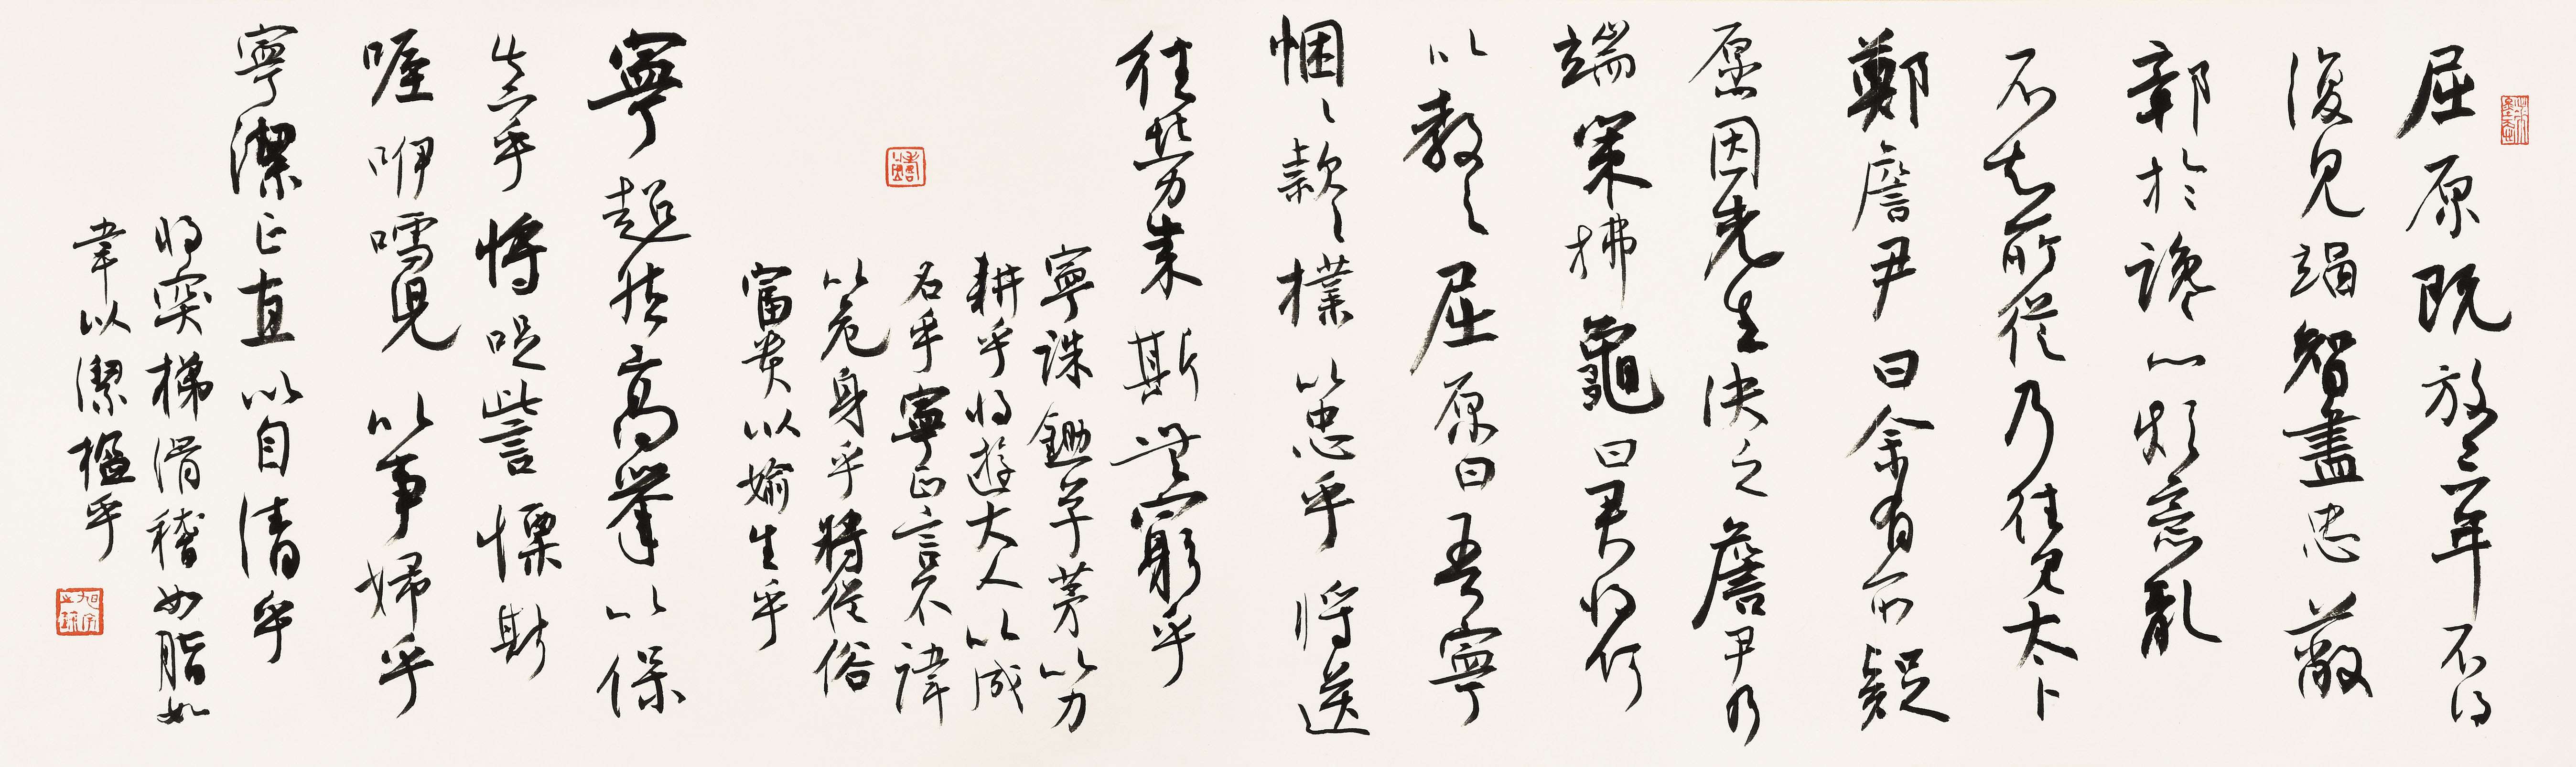 屈原既放三年不得
復見竭智盡忠蔽
鄣於讒心煩意亂
不知所從乃往見太卜
鄭詹尹曰余有所疑
愿因先生決之詹尹乃
端策拂龜曰君將何
以教之屈原曰吾寧
悃〻款〻樸以忠乎將送
往勞來斯無窮乎
寧誅鋤草茅以力
耕乎將遊大人以成
名乎寧正言不諱
以危身乎將從俗
富貴以媮生乎
寧超然高舉以保
真乎將哫訾慄斯
喔咿嚅兒以事婦乎
寧潔正直以自清乎
將突梯滑稽如脂如
韋以潔楹乎